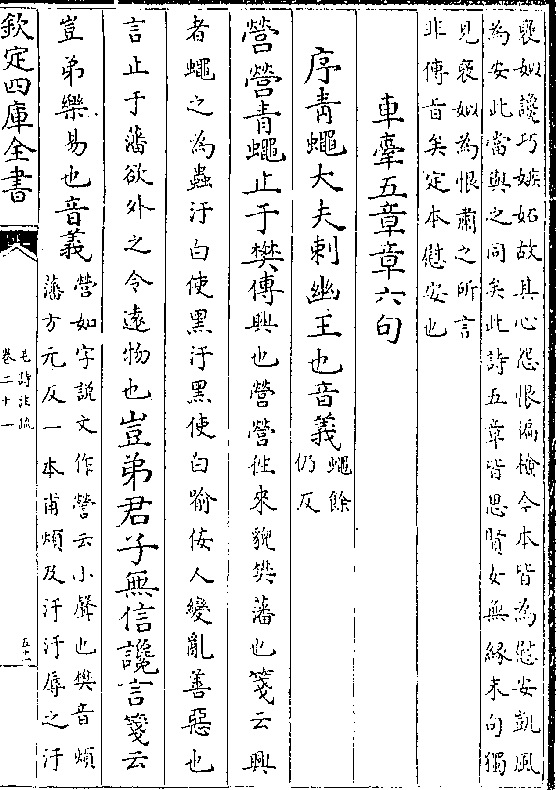 褒姒讒巧嫉妬故其心怨恨徧檢今本皆為慰安凱風
為安此當與之同矣此詩五章皆思賢女無緣末句獨
見褒姒為恨肅之所言
非傳旨矣定本慰安也
車舝五章章六句
序青蠅大夫刺幽王也音義蠅餘
仍反
營營青蠅止于樊傳興也營營往來貌樊藩也箋云興
者蠅之為蟲汙白使黑汙黑使白喻佞人變亂善惡也
言止于藩欲外之令遠物也豈弟君子無信讒言箋云
豈弟樂易也音義營如字說文作營云小聲也樊音煩
藩方元反一本甫煩反汙汙辱之汙
欽定四庫全書
毛詩注疏
卷二十一